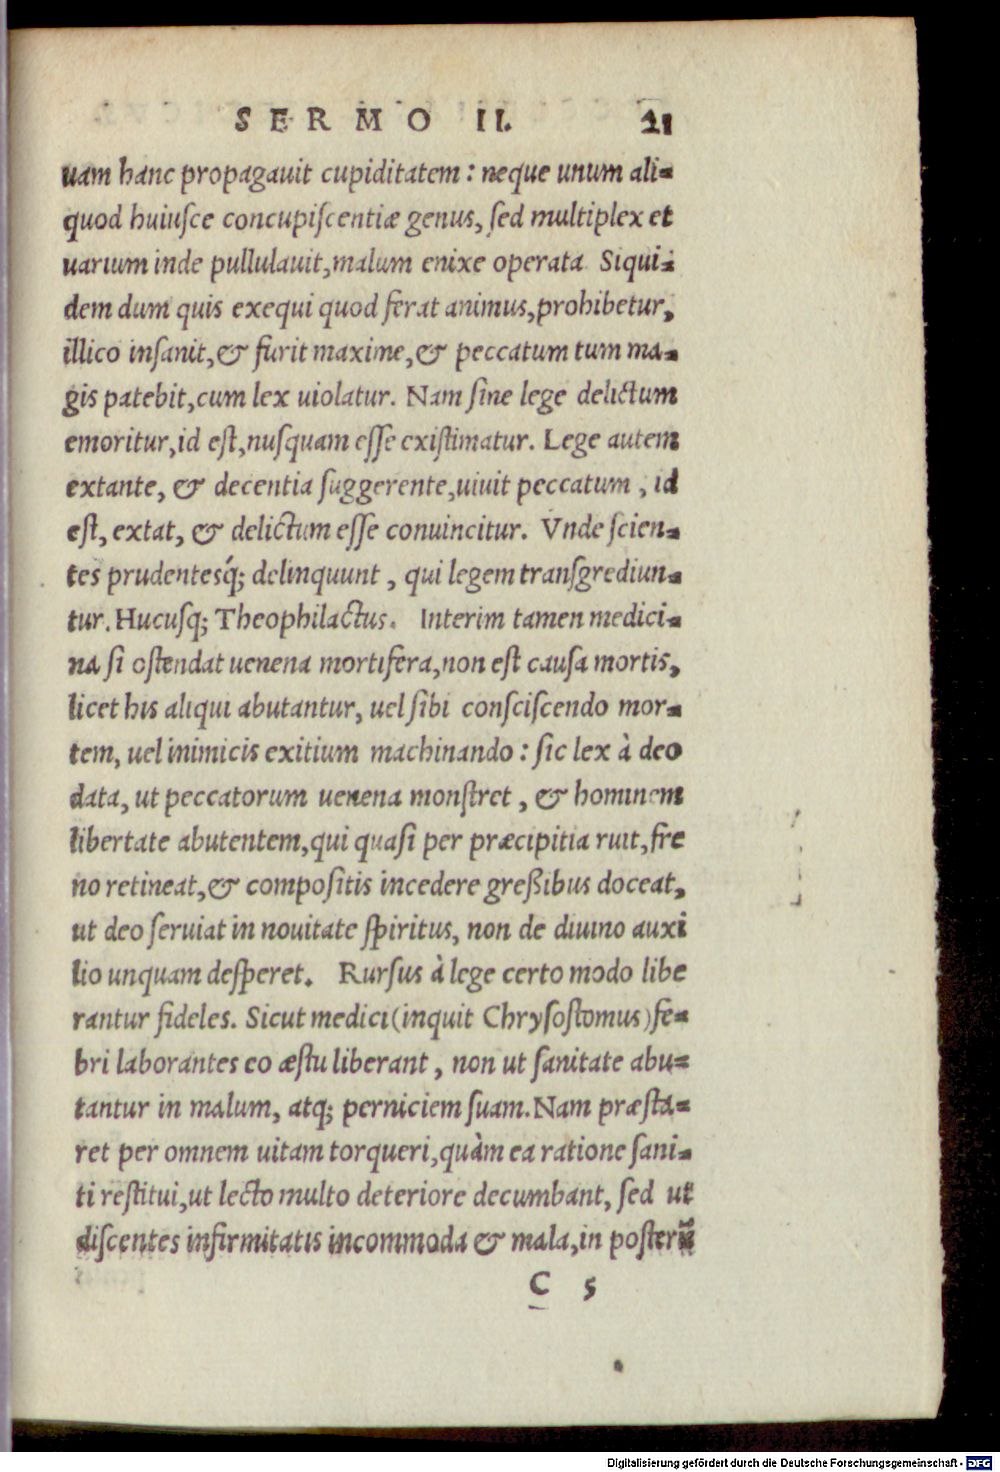 SERMO II. 21
uam hanc propagauit cupiditatem: neque unum ali-
quod huiusce concupiscentiæ genus, sed multiplex et
uarium inde pullulauit, malum enixe operata. Siqui-
dem dum quis exequi quod ferat animus, prohibetur,
illico insanit, & furit maxime, & peccatum tum ma-
gis patebit, cum lex uiolatur. Nam sine lege delictum
emoritur, id est, nusquam esse existimatur. Lege autem
extante, & decentia suggerente, uiuit peccatum, id
est, extat, & delictum esse conuincitur. Vnde scien-
tes prudentesq́; delinquunt, qui legem transgrediun-
tur. Hucusq; Theophilactus. Interim tamen medici-
na si ostendat uenena mortifera, non est causa mortis,
licet his aliqui abutantur, uel sibi consciscendo mor-
tem, uel inimicis exitium machinando: sic lex à deo
data, ut peccatorum uenena monstret, & hominem
libertate abutentem, qui quasi per præcipitia ruit, fre
no retineat, & compositis incedere greßibus doceat,
ut deo seruiat in nouitate spiritus, non de diuino auxi
lio unquam desperet. Rursus à lege certo modo libe
rantur fideles. Sicut medici (inquit Chrysostomus) fe-
bri laborantes eo æstu liberant, non ut sanitate abu-
tantur in malum, atq; perniciem suam. Nam præsta-
ret per omnem uitam torqueri, quàm ea ratione sani-
ti restitui, ut lecto multo deteriore decumbant, sed ut
discentes infirmitatis incommoda & mala, in posterũ
C 5
Digitalisierung gefördert durch die Deutsche Forschungsgemeinschaft - DFG